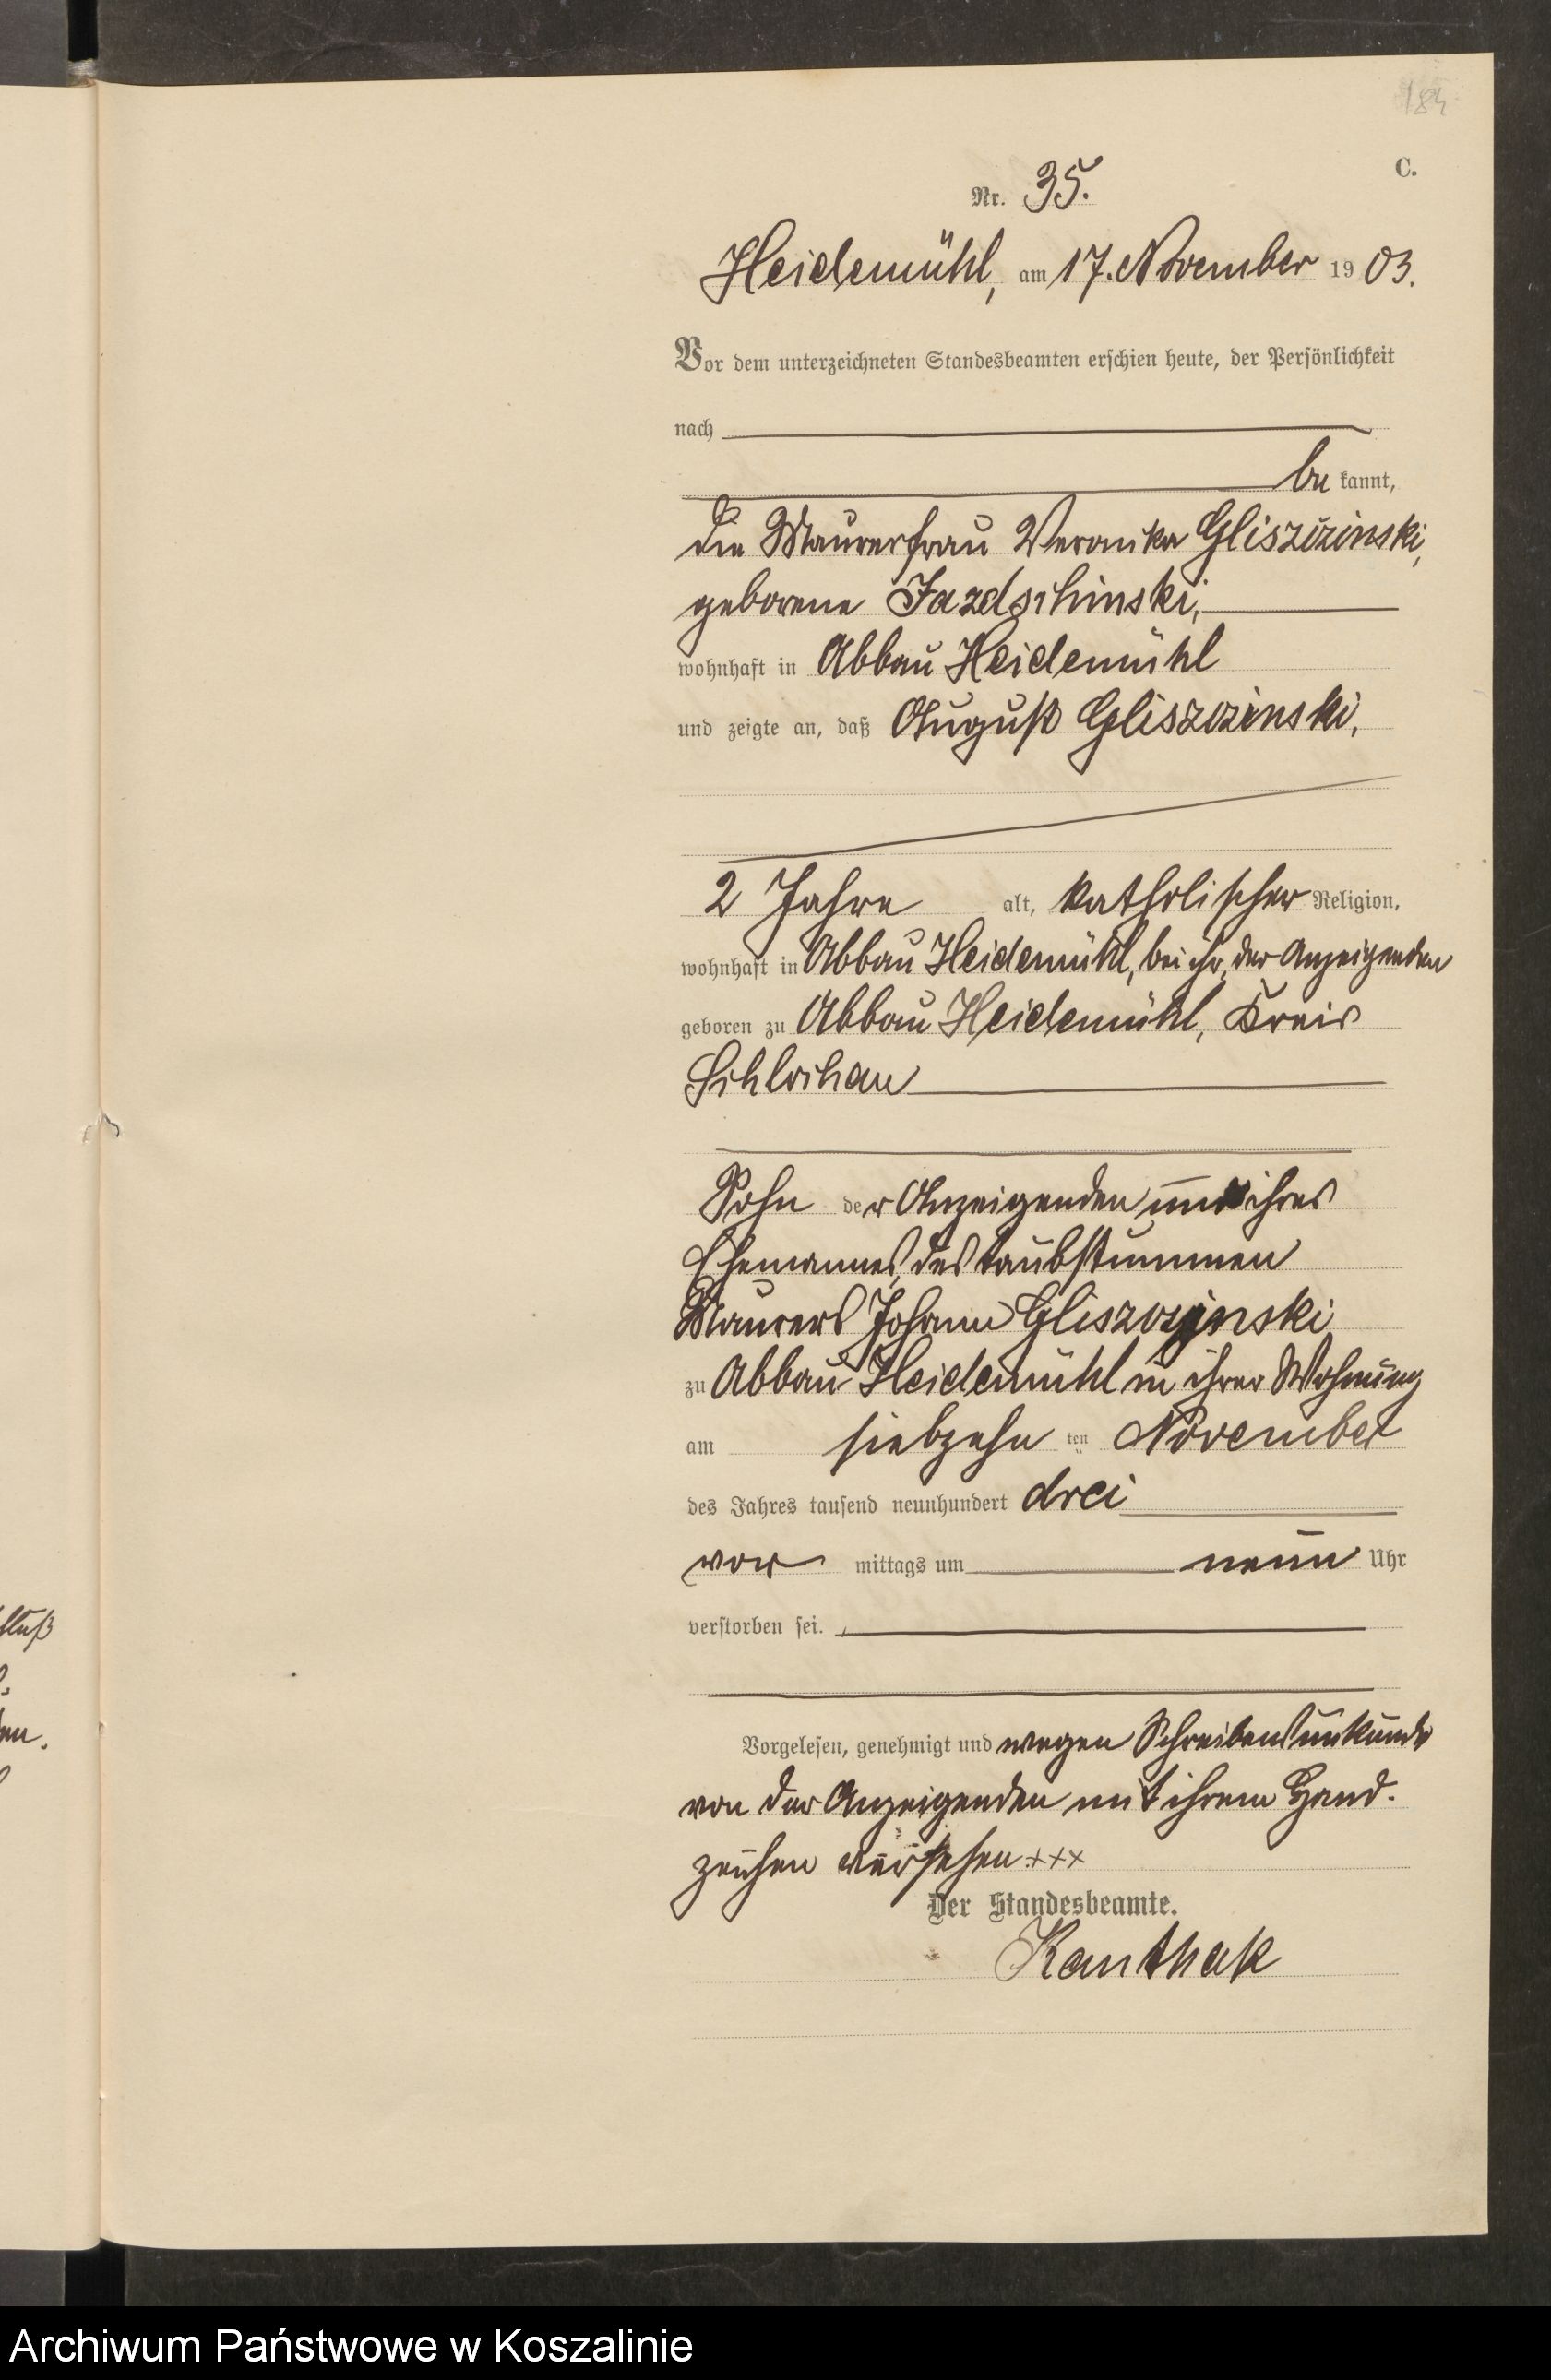 184
C.
Nr. 35.
Heidemühl, am 17. November 1903.
Vor dem unterzeichneten Standesbeamten erschien heute, der Persönlichkeit
nach
be kannt,
die Maurerfrau Veronika Gliszczinski,
geborene Jazdschinski,
wohnhaft in Abbau Heidemühl
und zeigte an, daß August Gliszczinski,
2 Jahre alt, katholischer Religion,
wohnhaft in Abbau Heidemühl, bei ihr, der Anzeigenden
geboren zu Abbau Heidemühl, Kreis
Schlochau
Sohn der Anzeigenden und ihres
Ehemannes, des taubstummen
Maurers Johann Gliszczynski
zu Abbau Heidemühl in ihrer Wohnung
am siebzehn ten November
des Jahres tausend neunhundert drei
vor mittags um neun Uhr
verstorben sei.
Vorgelesen, genehmigt und wegen Schreibensunkunde
von der Anzeigenden mit ihrem Hand-
zeichen versehen +++
Der Standesbeamte.
Kanthak
Archiwum Państwowe w Koszalinie